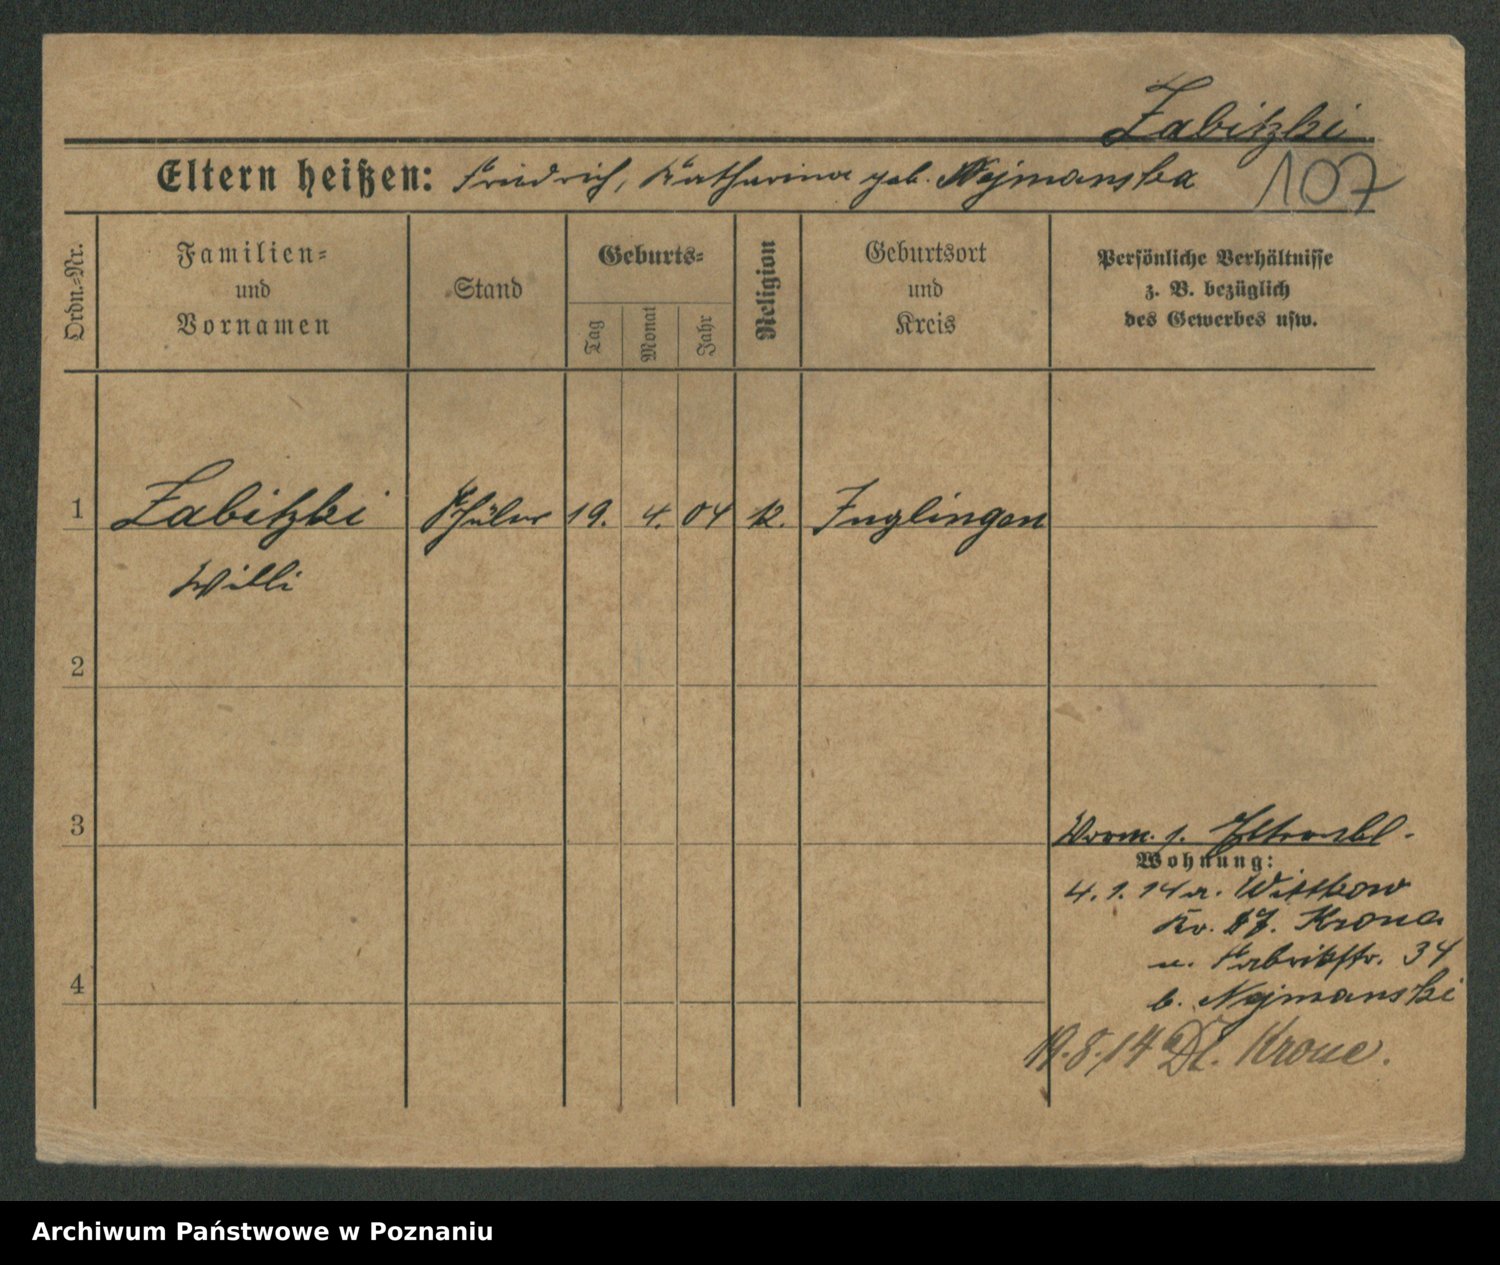 Zabitzki
Eltern heißen: Friedrich, Katharina geb. Nejmanska
107
Ordn.-Nr.
Familien-
und
Vornamen
Stand
Geburts-
Tag
Monat
Jahr
Religion
Geburtsort
und
Kreis
Persönliche Verhältnisse
z. B. bezüglich
des Gewerbes usw.
1
Zabitzki
Schüler
19.
4.
04
k.
Inglingen
Willi
2
3
Vorm. s.
Wohnung:
4.1.14 a. Wittkow
Kr. Dt. Krone
n. Fabrikstr. 34
b. Nejmanski
4
19.8.14 Dt. Krone.
Archiwum Państwowe w Poznaniu